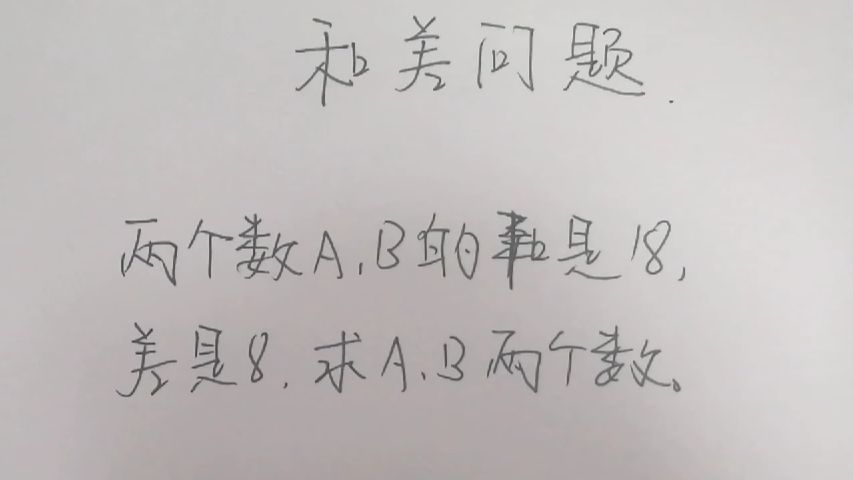 和差问题.
两个数A,B的和是18,
差是8.求A、B两个数。